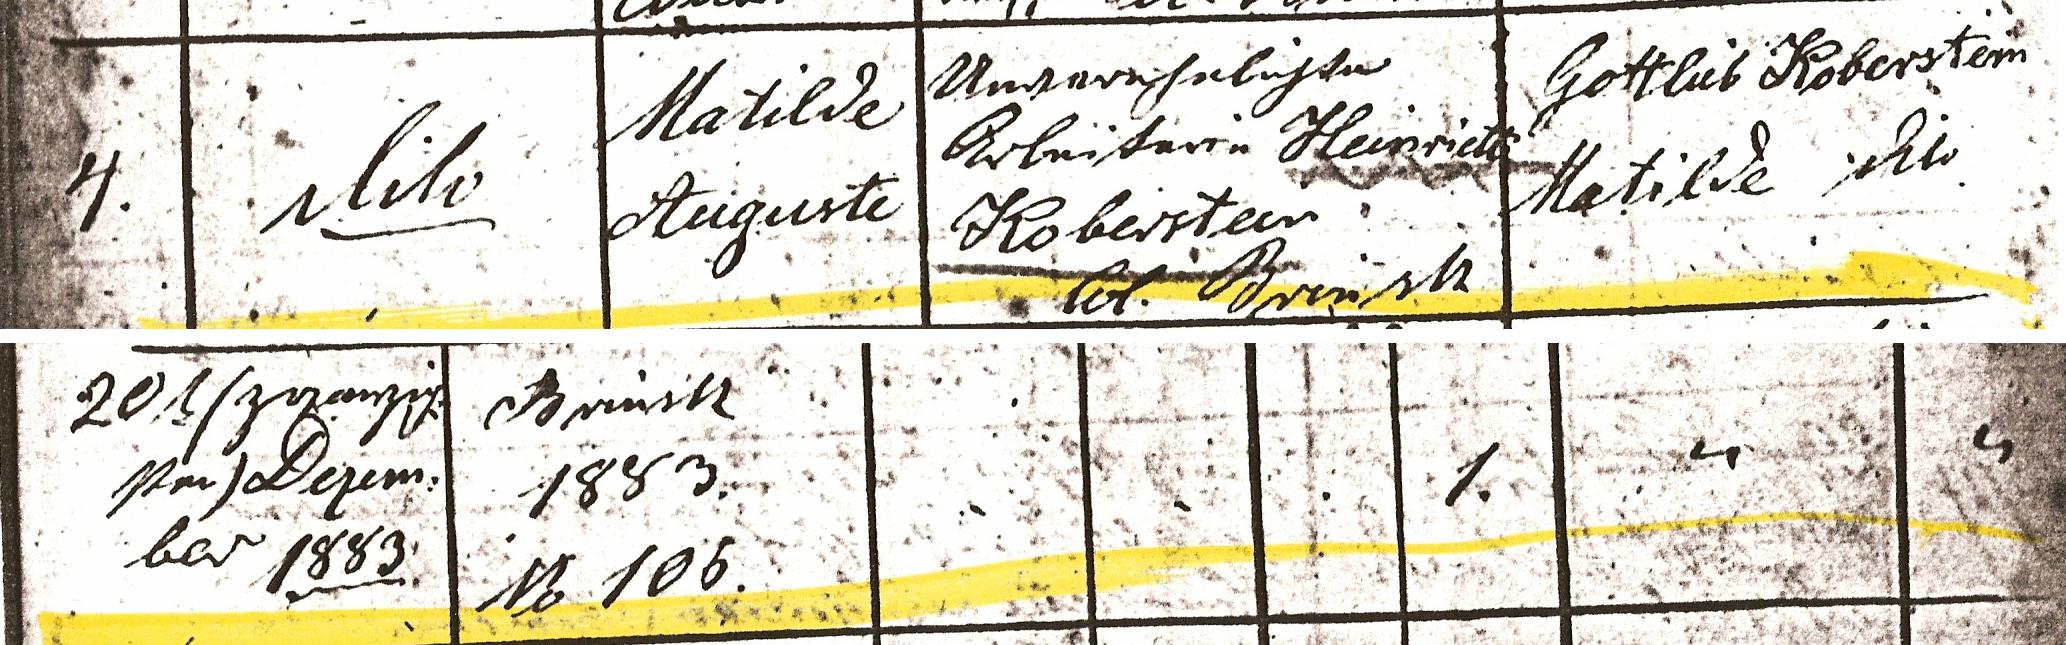 4.
dito
Matilde
Auguste
Unverehelichte
Arbeiterin Heinriette
Koberstein
Col. Brinsk
Gottlieb Koberstein
Matilde dito
20t (zwanzig-
sten) Dezem-
ber 1883.
Brinsk
1883.
No 106.
1.
"
"